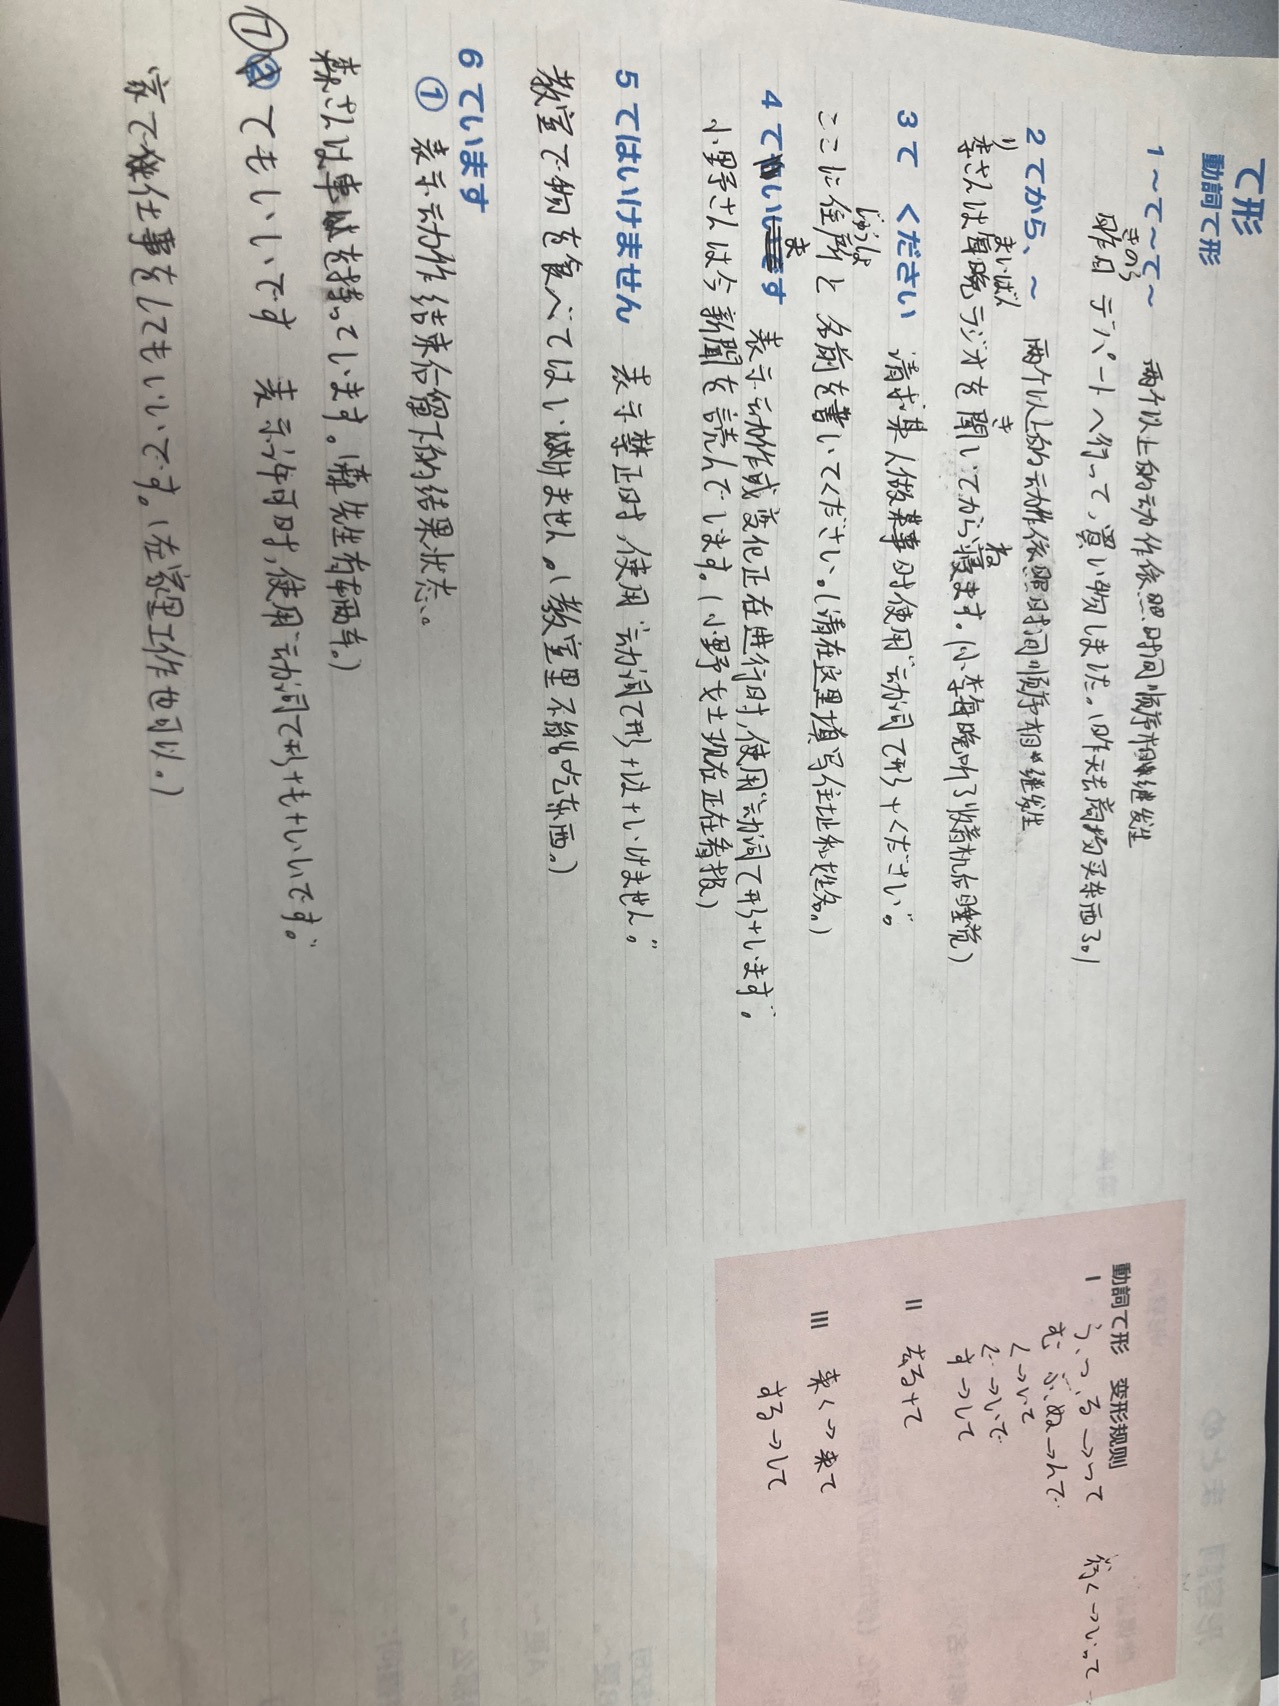 て形
動詞て形
1 ~て~て~ 两个以上的动作依照时间顺序相继发生
きのう
昨日 デパートへ行って、買い物しました。(昨天去商场买东西了。)
2 てから、~ 两个以上的动作依照时间顺序相继发生
り まいばん き ね
李さんは毎晩ラジオを聞いてから寝ます。(小李每晚听了收音机后睡觉)
3 て ください 请求某人做某事时使用“动词て形+ください”。
じゅうしょ
ここに住所と名前を書いてください。(请在这里填写住址和姓名。)
4 ています 表示动作或变化正在进行时,使用“动词て形+います”。
小野さんは今新聞を読んでいます。(小野女士现在正在看报)
5 てはいけません 表示禁止时,使用“动词て形+は+いけません。”
教室で物を食べてはいけません。(教室里不能吃东西。)
6 ています
① 表示动作结束后留下的结果状态。
森さんは車を持っています。(森先生有辆车。)
⑦ てもいいです 表示许可时,使用“动词て形+も+いいです。”
家で仕事をしてもいいです。(在家里工作也可以。)
動詞て形 变形规则
I う、つ、る→って 行く→いって
む ぶ、ぬ→んで
く→いて
ぐ→いで
す→して
II 去る+て
III 来く→来て
する→して